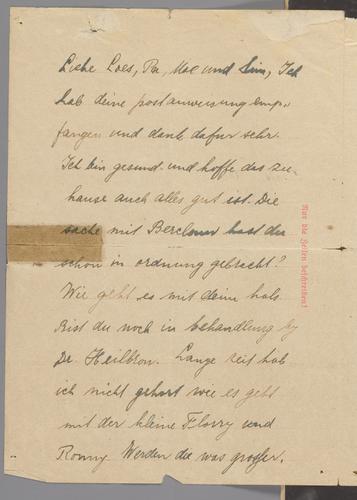 Liebe Loes, Pa, Moe und Sim, Ich
hab deine postanweisung emp-
fangen und dank dafur sehr.
Ich bin gesund und hoffe das zu-
hause auch alles gut ist. Die
sache mit hast du
schon in ordnung gebracht?
Wie geht es mit deim hals
Bist du noch in behandlung by
Dr. Heilbron. Lange zeit hab
ich nicht gehort wie es geht
mit der kleine Florry und
Ronny. Werden die was grosser.
Nur die Zeilen beschreiben!